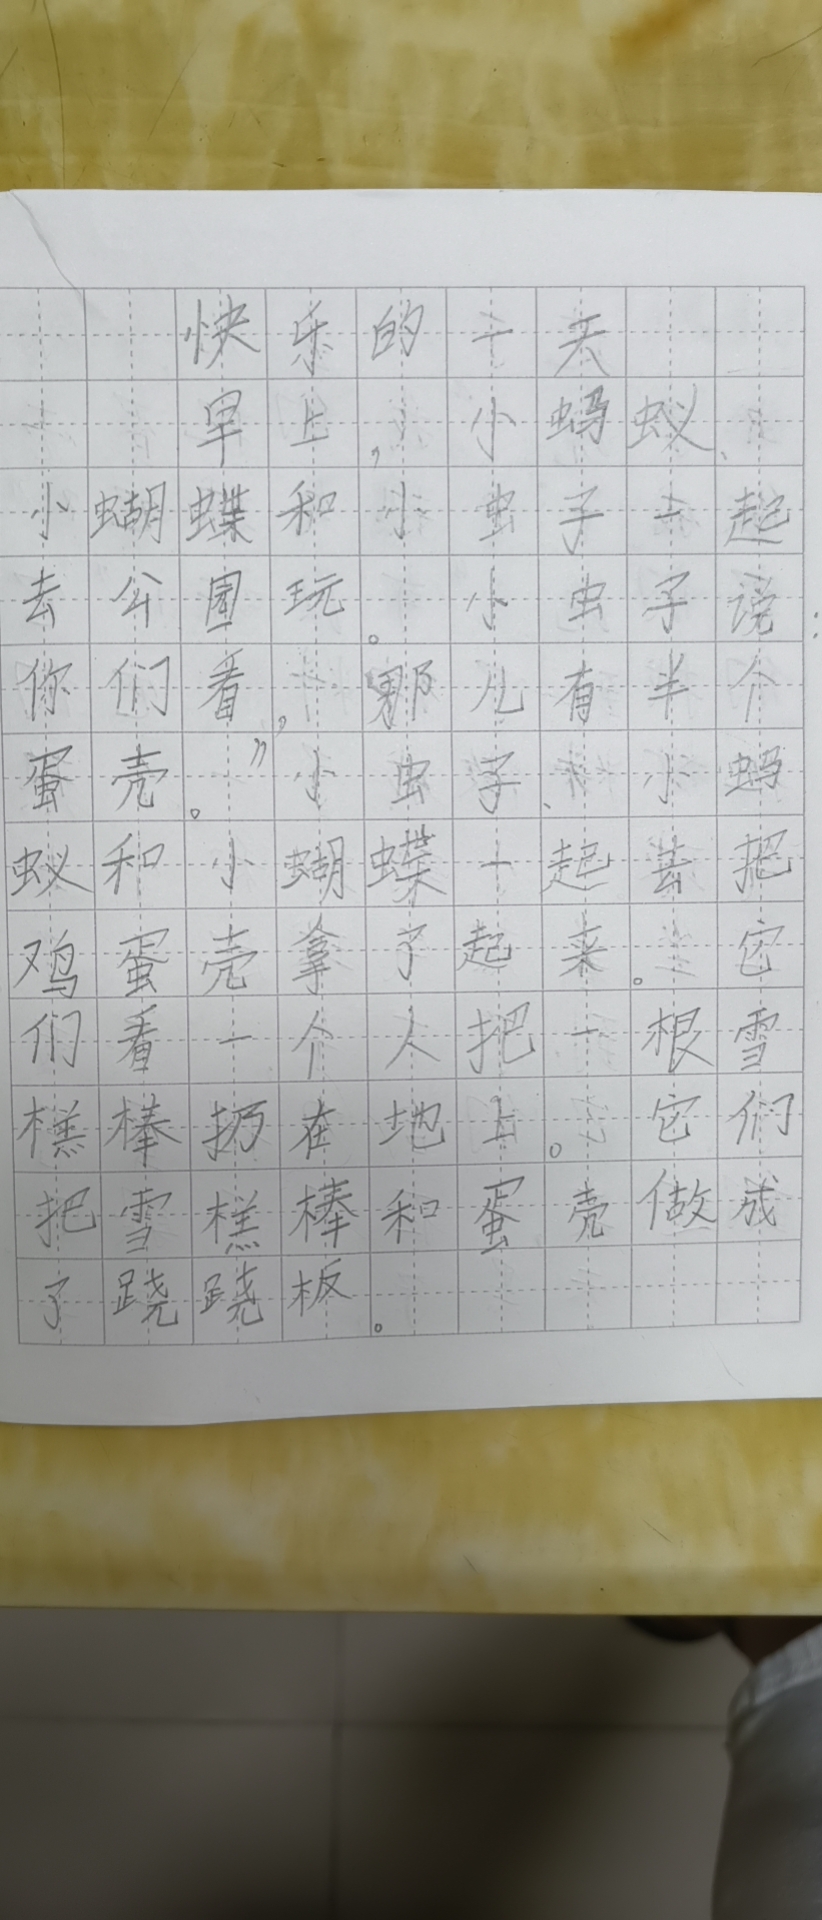 快乐的一天
早上，小蚂蚁、
小蝴蝶和小虫子一起
去公园玩。小虫子说：
你们看，那儿有半个
蛋壳。”小虫子、小蚂
蚁和小蝴蝶一起去把
鸡蛋壳拿了起来。它
们看一个人把一根雪
糕棒扔在地上。它们
把雪糕棒和蛋壳做成
了跷跷板。